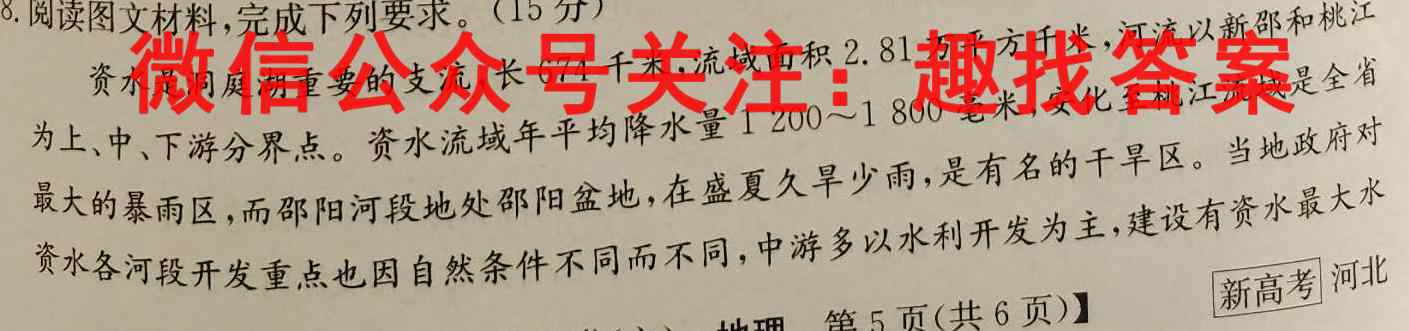 8.阅读图文材料,完成下列要求。(15分)
资水是洞庭湖重要的支流,长674千米,流域面积2.81万平方千米,河流以新邵和桃江
微信公众号关注：趣找答案
为上、中、下游分界点。资水流域年平均降水量1 200～1 800毫米,安化至桃江流域是全省
最大的暴雨区,而邵阳河段地处邵阳盆地,在盛夏久旱少雨,是有名的干旱区。当地政府对
资水各河段开发重点也因自然条件不同而不同,中游多以水利开发为主,建设有资水最大水
地理 第5页(共6页)】
新高考 河北